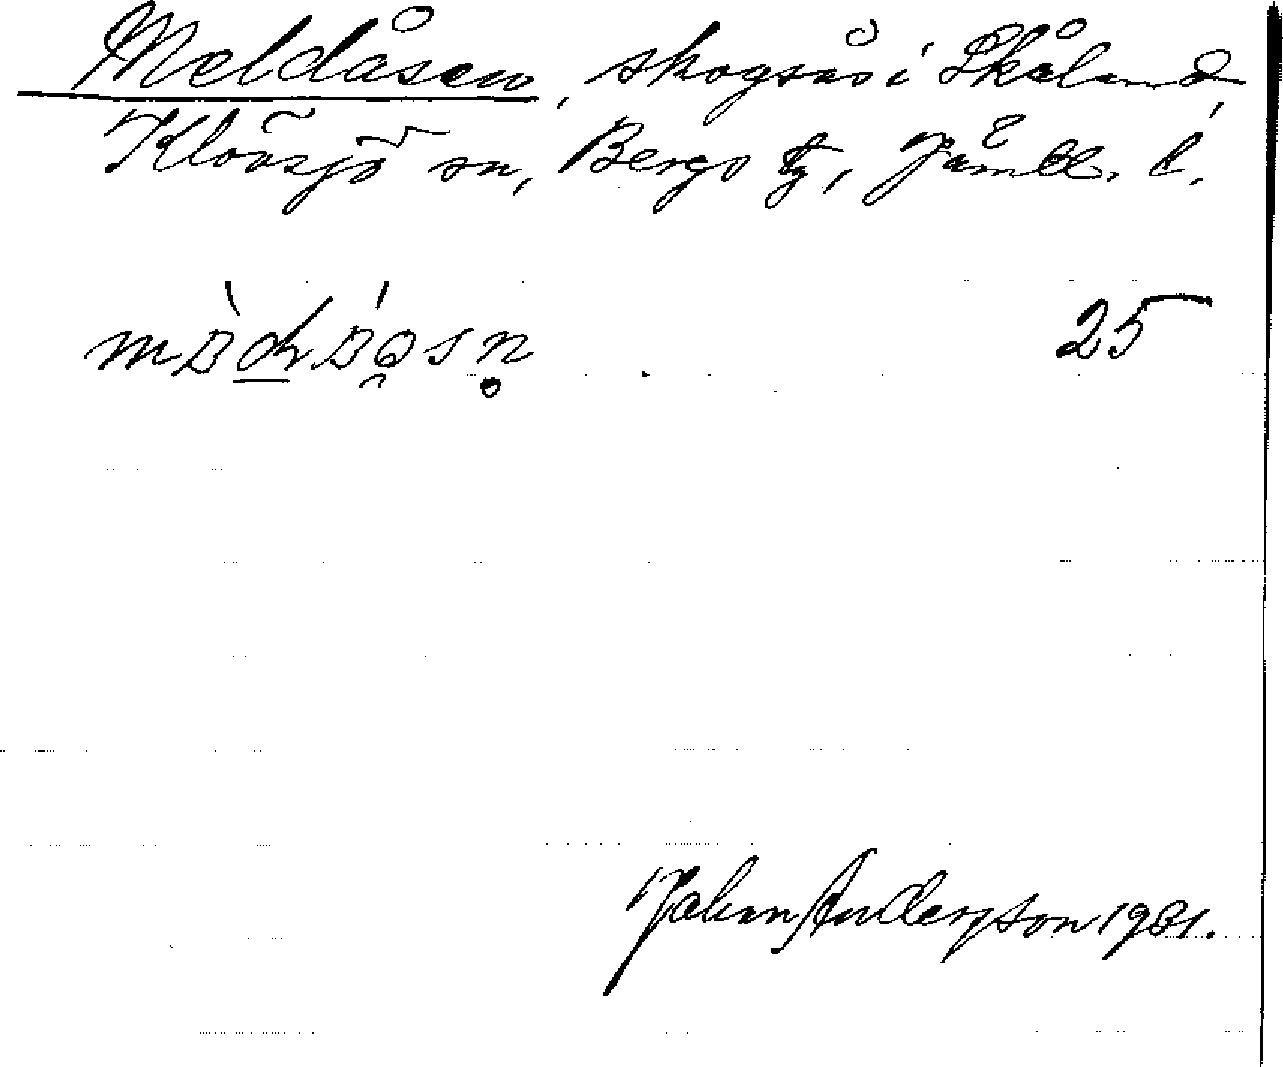 Meldåsen, skogsås i Skålan,
Klövsjö sn, Bergs tg, Jämtl. l.
25
Johan Anderson 1931.